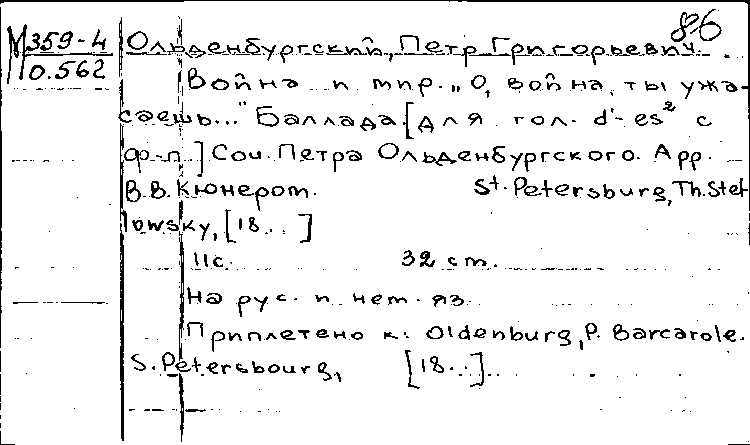 86
М 359-4 Ольденбургский, Петр Григорьевич.
0.562
Война и мир. „О, война, ты ужа-
саешь..." Баллада. [Для гол. d'-es² с
ф-п.] Соч. Петра Ольденбургского. Арр.
В.В. Кюнером. St. Petersburg, Th. Stel
lowsky, [18..]
11 с. 32 см.
На рус. и нем. яз.
Приплетено к: Oldenburg, P. Barcarole.
S. Petersbourg, [18..].